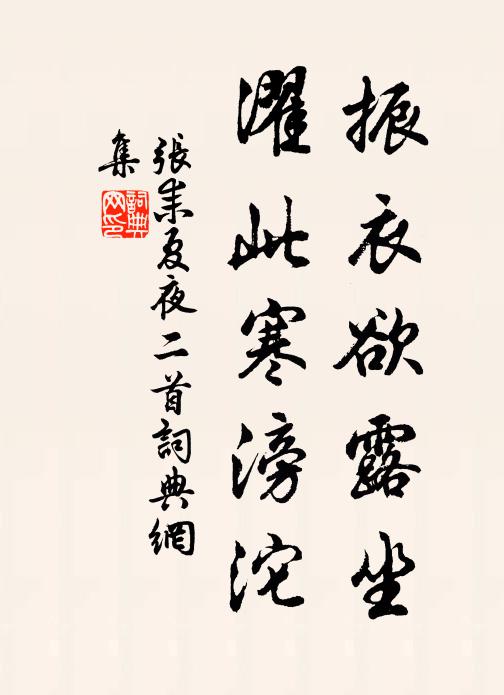 振衣欲露坐
濯此寒滂沱
張耒夏夜二首詞典網
集
詞典
網印